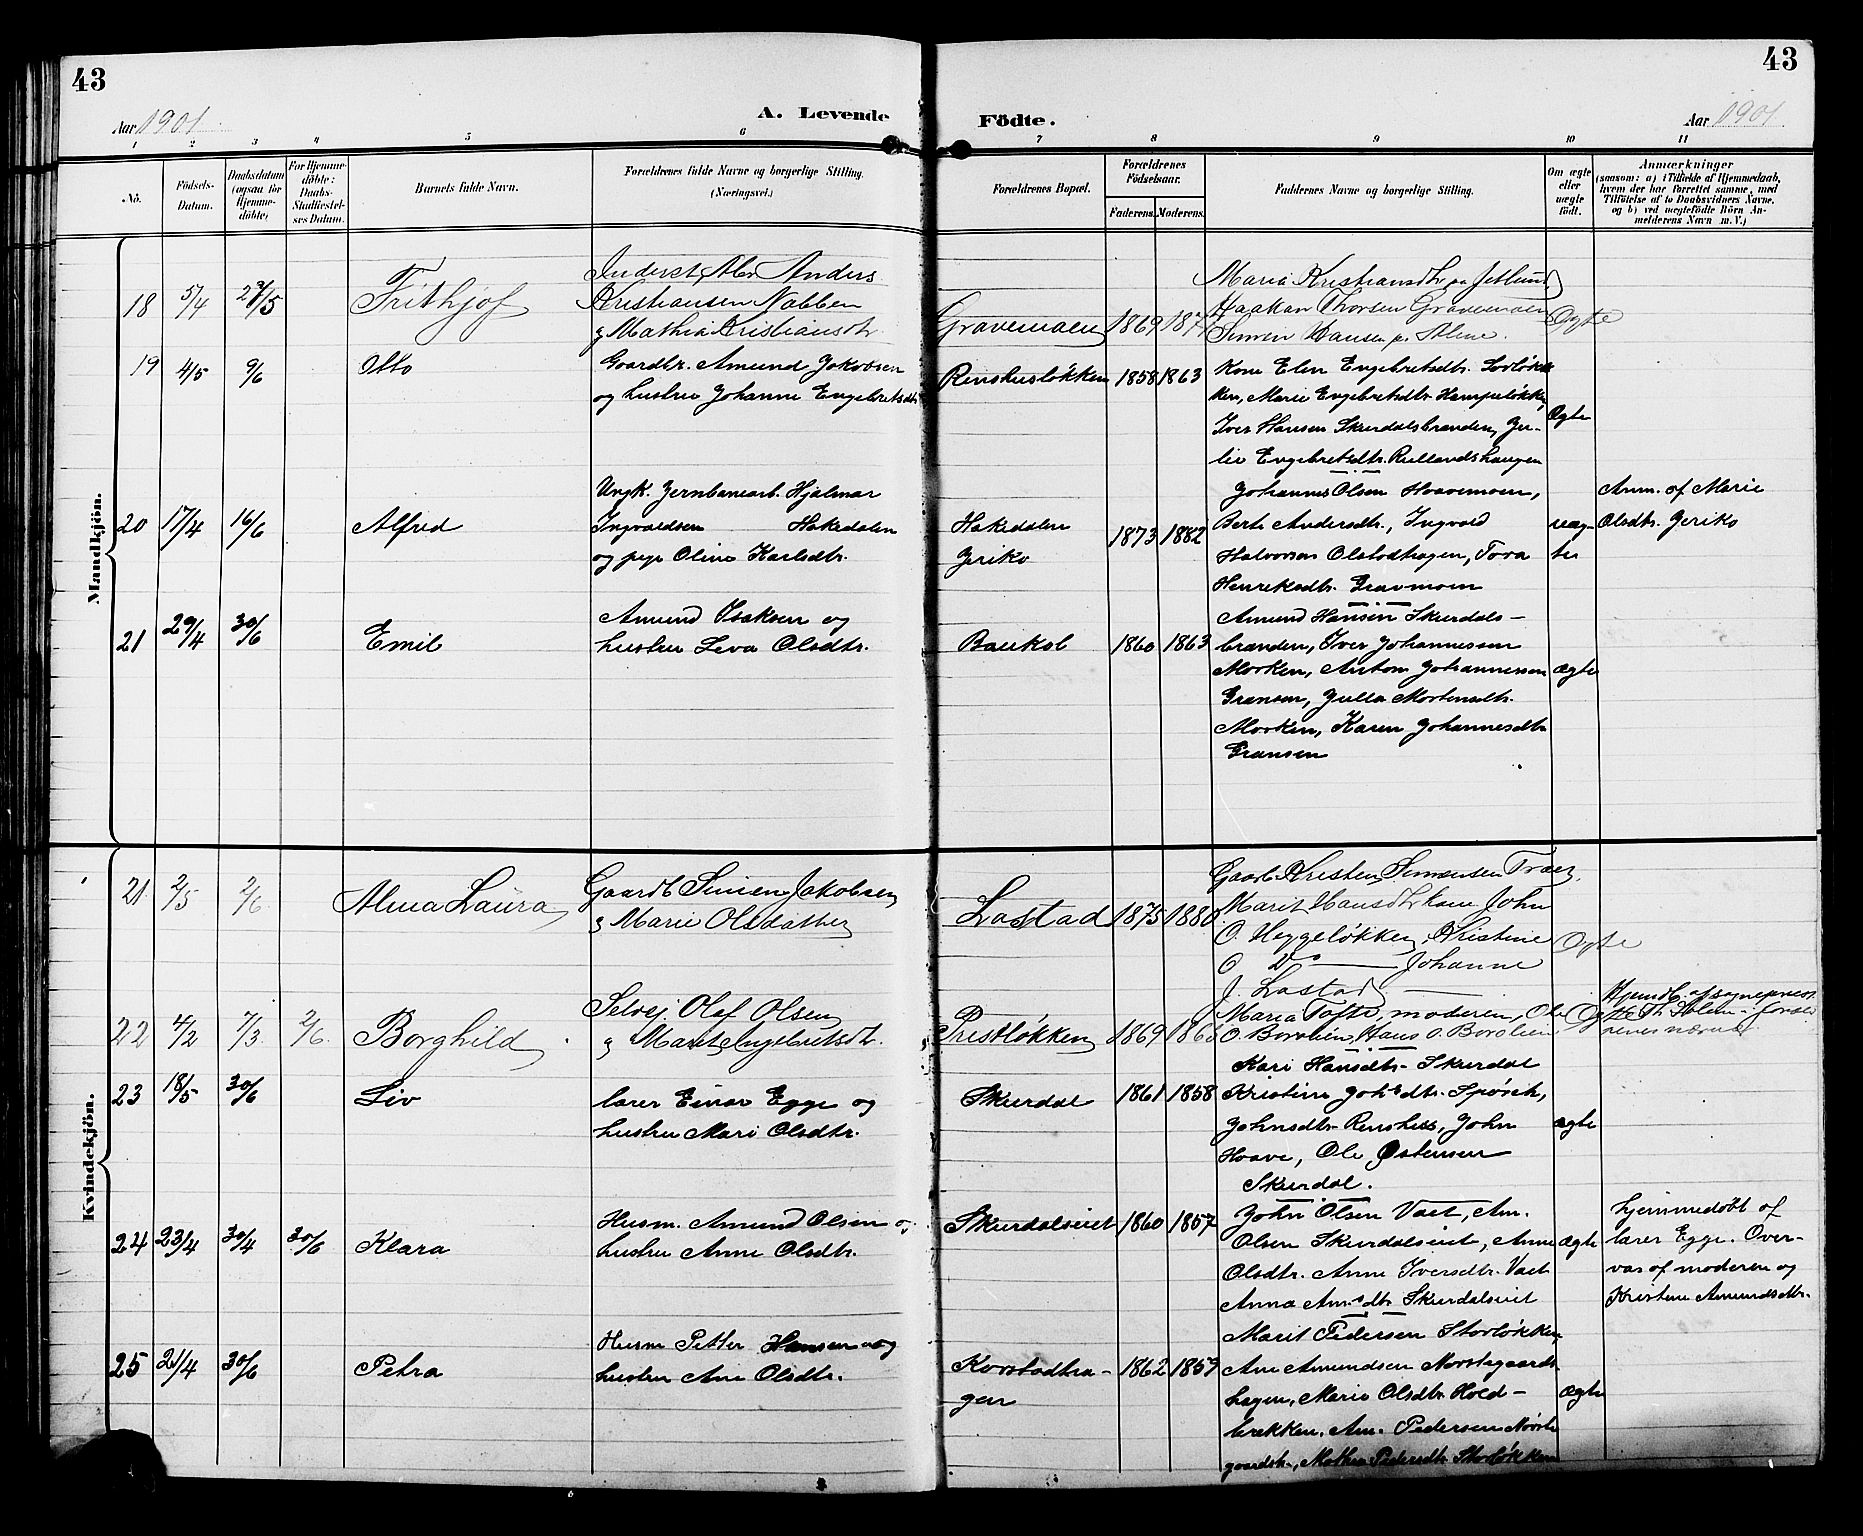 43
43
Aar 1901
A. Levende
Födte.
Aar 1901
1 2 3 4 5 6 7 8 9 10 11
No.
Födsels-Datum.
Daabsdatum (ogsaa for Hjemmedöbte)
For Hjemmedöbte: Daabs-Stadfæstelses Datum.
Barnets fulde Navn.
Forældrenes fulde Navne og borgerlige Stilling.
(Næringsvei.)
Forældrenes Bopæl.
Forældrenes Födselsaar.
Faderens. Moderens.
Faddernes Navne og borgerlige Stilling.
Om ægte eller uægte födt.
Anmærkninger
(saasom: a) i Tilfælde af Hjemmedaab, hvem der har forrettet samme, med Tilföielse af to Daabsvidners Navne, og b) ved uægtefödte Börn Anmelderens Navn m. V.)
Mandkjön.
18 5/4 27/5 Frithjof
Anders
Kristiansen Nabben
& Mathia Kristiansdtr
Gravemoen 1869
Maria Kristiansdtr
Haakan Thorsen Gravemoen
Simen Hansen
Ægte
19 4/5 9/6 Otto
Gaardbr. Amund Jakobsen
og hustru Johanne Engebretsdtr.
Renshusløkken 1858 1863
Kone Elen Engebretsdtr. Sorløk-
ken, Marie Engebretsdtr. Hampeløkken,
Iver Hansen Skurdalsbranden, Ju-
lie Engebretsdtr. Rullandshaugen
Ægte
20 17/4 16/6 Alfred
Ungk. Jernbanearb. Hjalmar
Ingvaldsen Hakedalen
og pige Oline Karlsdtr.
Hakedalen
Jeriko
1873 1882
Johannes Olsen Haavemoen,
Berte Andersdtr., Ingvald
Halvorsen Olstadhagen, Tora
Henriksdtr. Gravmoen
uæg-
te
Anm. af Marie
Olsdtr. Jeriko
21 29/4 30/6 Emil
Amund Isaksen og
hustru Leva Olsdtr.
Baukol 1860 1863
Amund Hansen Skurdals-
branden, Iver Johannessen
Morken, Anton Johannessen
Gransen, Julla Mortensdtr.
Morken, Karen Johannesdtr.
Gransen
ægte
Kvindekjön.
21 2/5 2/6 Alma Laura
Gaardb. Simen Jakobsen
& Marie Olsdatter
Lastad 1875 1880
Gaardb. Kristen Simensen
Marit Hansdtr kone John
O. Heggeløkken, Kristine
O. Do — Johanne
J. Lastad —
Ægte
22 4/2 7/3 2/6 Borghild
Selvej. Olaf Olsen
& Marit Ingebretsdtr.
Prestløkken 1869
Maria Tofte, moderen, Ole
O. Borolien, Hans O. Borolien
Ægte
Hjemdb. af sogneprest
23 18/5 30/6 Liv
lærer Einar Egge og
hustru Mari Olsdtr.
Skurdal 1861 1858
Kari Hansdtr. Skurdal
Kristine Johsdtr.
Johnsdtr. Renshus, John
Haave, Ole Østensen
Skurdal.
ægte
24 23/4 30/4 30/6 Klara
Husm. Amund Olsen og
hustru Anne Olsdtr.
Skurdalseiet 1860 1857
John Olsen Vaet, Am.
Olsen Skurdalseiet, Anne
Olsdtr. Anne Iversdtr. Vaet
Anna Am.sdtr. Skurdalseiet
Ægte
hjemmedøbt af
lærer Egge. Over-
var af moderen og
Kristine Amundsdtr.
25 21/4 30/6 Petra
Husm. Petter Hansen og
hustru Ane Olsdtr.
Korstadha-
gen
1862 1859
Marit Pedersen Storløkken
Am Amundsen Norstegaards-
hagen, Marie Olsdtr. Hold-
brekken, Am. Pedersen Norste-
gaardsh., Mathea Pedersdtr. Storløkken
ægte